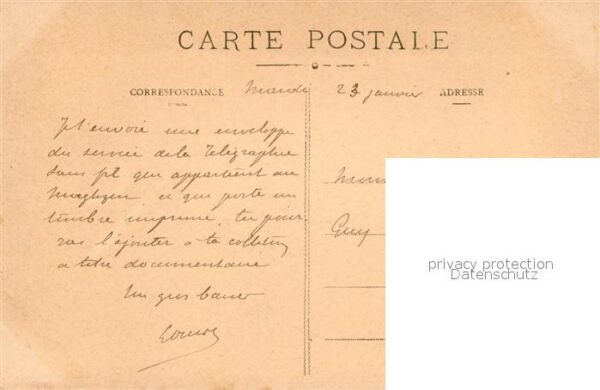 CARTE POSTALE
CORRESPONDANCE Mardi 23 janvier ADRESSE
Je t'envoie une enveloppe
du service de la Télégraphie
sans fil qui appartient au
Maghzen et qui porte un
timbre imprimé, tu pour
ras l'ajouter à ta collection
à titre documentaire
Un gros baiser
Mons
Guy
privacy protection
Datenschutz